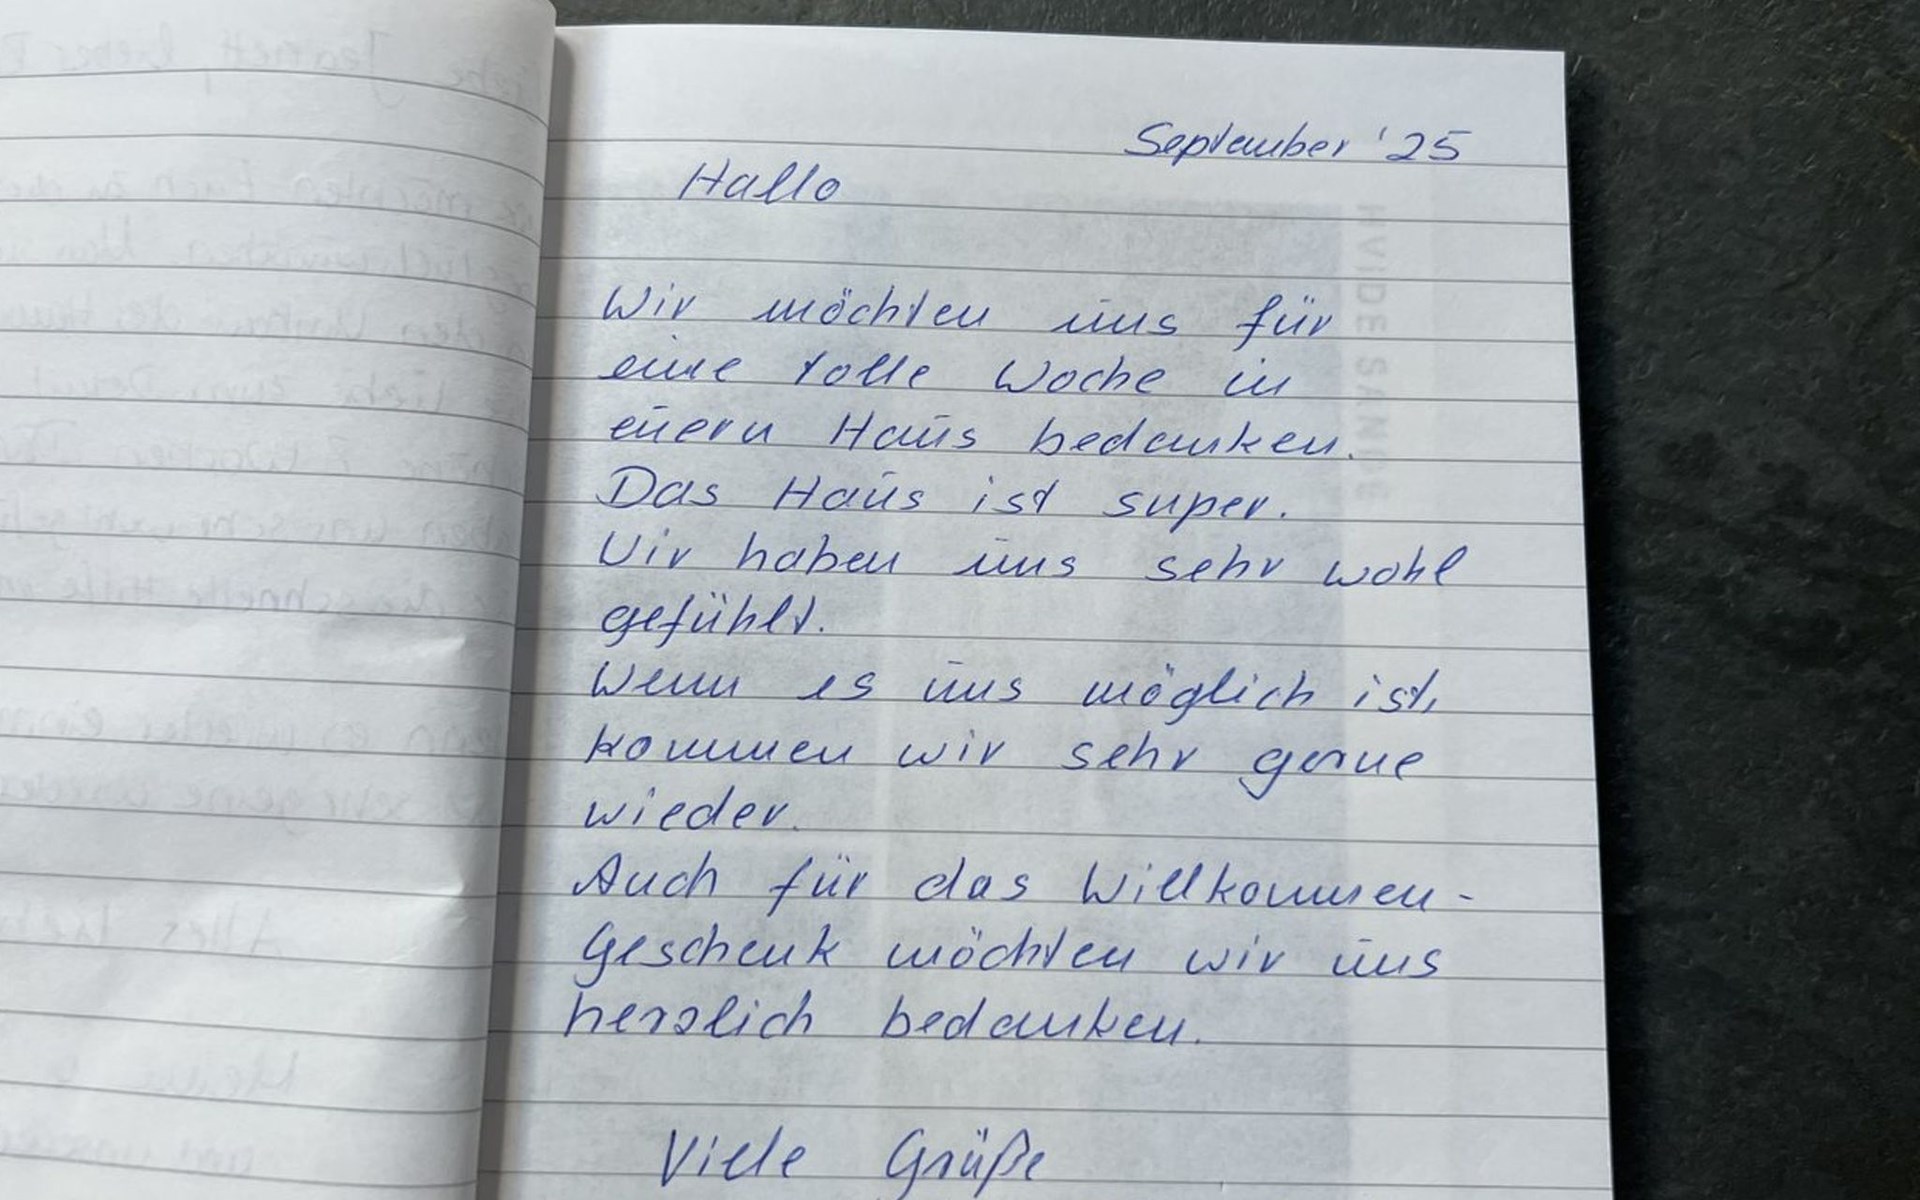 September '25
Hallo
Wir möchten uns für
eine tolle Woche in
euern Haus bedanken.
Das Haus ist super.
Wir haben uns sehr wohl
gefühlt.
Wenn es uns möglich ist,
kommen wir sehr gerne
wieder.
Auch für das Willkommen-
Geschenk möchten wir uns
herzlich bedanken.
Viele Grüße
HVIDE SANDE